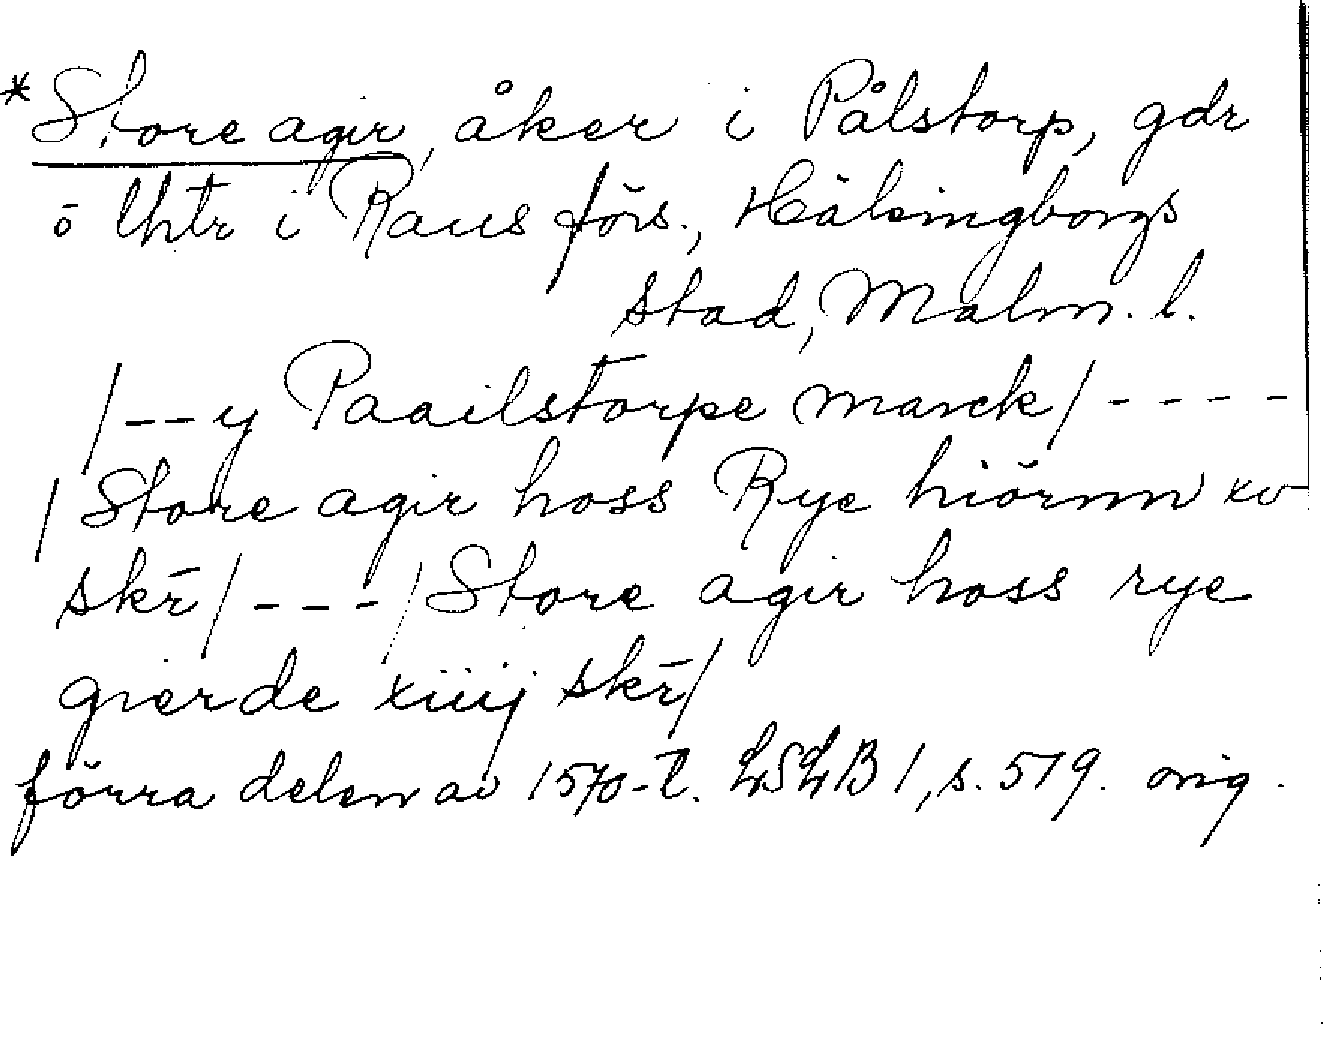 *Store agir, åker i Pålstorp, gdr
o lhtr i Raus förs., Hälsingborgs
stad, Malm. l.
/--y Paailstorpe marck/----
/Store agir hoss Rye hiörnn xv
skr̄/---/Store agir hoss rye
gierde xiiij skr̄/
förra delen av 1570-t. LSLB 1, s. 519. orig.